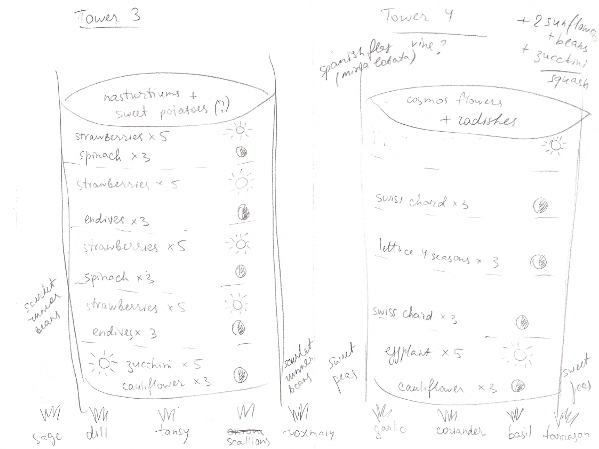 Tower 3
nasturtiums +
sweet potatoes (?)
strawberries x 5
spinach x 3
strawberries x 5
endives x 3
strawberries x 5
spinach x 3
strawberries x 5
endives x 3
zucchini x 5
cauliflower x 3
scarlet
runner
beans
scarlet
runner
beans
sage
dill
tansy
scallions
rosmary
Tower 4
+ 2 sunflowers
+ beans
+ zucchini
squash
spanish flag
vine?
(mina lobata)
cosmos flowers
+ radishes
swiss chard x 3
lettuce 4 seasons x 3
swiss chard x 3
eggplant x 5
cauliflower x 3
sweet
peas
sweet
peas
garlic
coriander
basil
tarragon